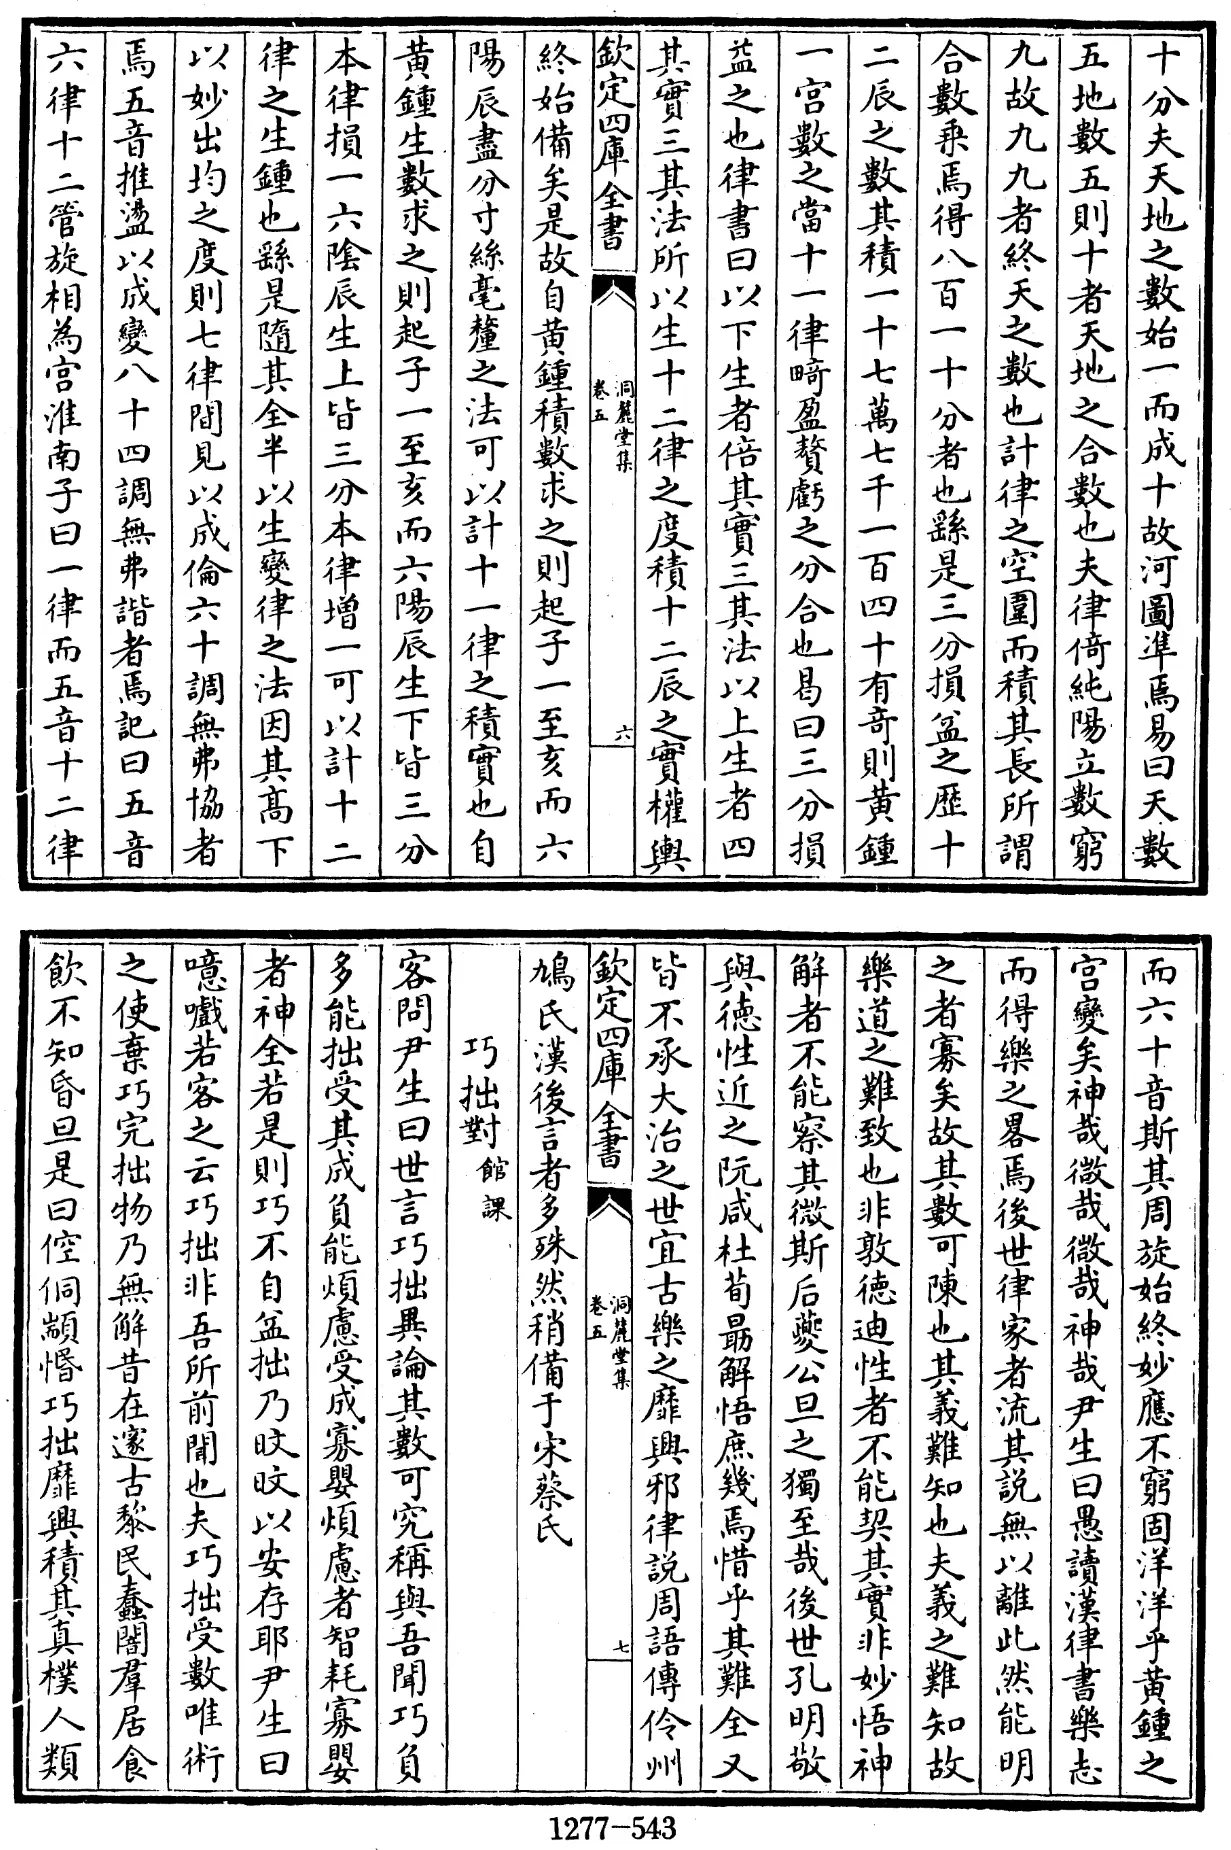 十分夫天地之數始一而成十故河圖準焉易曰天數
五地數五則十者天地之合數也夫律倚純陽立數窮
九故九九者終天之數也計律之空圍而積其長所謂
合數乘焉得八百一十分者也繇是三分損益之歷十
二辰之數其積一十七萬七千一百四十有竒則黄鍾
一宫數之當十一律畸盈贅虧之分合也曷曰三分損
益之也律書曰以下生者倍其實三其法以上生者四
其實三其法所以生十二律之度積十二辰之實權輿
欽定四庫全書
洞麓堂集
卷五
六
終始備矣是故自黄鍾積數求之則起子一至亥而六
陽辰盡分寸絲毫釐之法可以計十一律之積實也自
黄鍾生數求之則起子一至亥而六陽辰生下皆三分
本律損一六陰辰生上皆三分本律增一可以計十二
律之生鍾也繇是隨其全半以生變律之法因其髙下
以妙出均之度則七律間見以成倫六十調無弗協者
焉五音推盪以成變八十四調無弗諧者焉記曰五音
六律十二管旋相為宫淮南子曰一律而五音十二律
而六十音斯其周旋始終妙應不窮固洋洋乎黄鍾之
宫變矣神哉微哉微哉神哉尹生曰愚讀漢律書樂志
而得樂之畧焉後世律家者流其説無以離此然能明
之者寡矣故其數可陳也其義難知也夫義之難知故
樂道之難致也非敦德迪性者不能契其實非妙悟神
解者不能察其微斯后夔公旦之獨至哉後世孔明敬
與德性近之阮咸杜荀最解悟庶幾焉惜乎其難全又
皆不承大治之世宜古樂之靡興邪律説周語傳伶州
欽定四庫全書
洞麓堂集
卷五
七
鳩氏漢後言者多殊然稍備于宋蔡氏
巧拙對 館課
客問尹生曰世言巧拙異論其數可究稱與吾聞巧負
多能拙受其成負能煩慮受成寡嬰煩慮者智耗寡嬰
者神全若是則巧不自益拙乃旼旼以安存耶尹生曰
噫嚱若客之云巧拙非吾所前聞也夫巧拙受數唯術
之使棄巧完拙物乃無解昔在邃古黎民蠢闇羣居食
飲不知昏旦是曰倥侗顓惛巧拙靡興積其真樸人類
1277-543